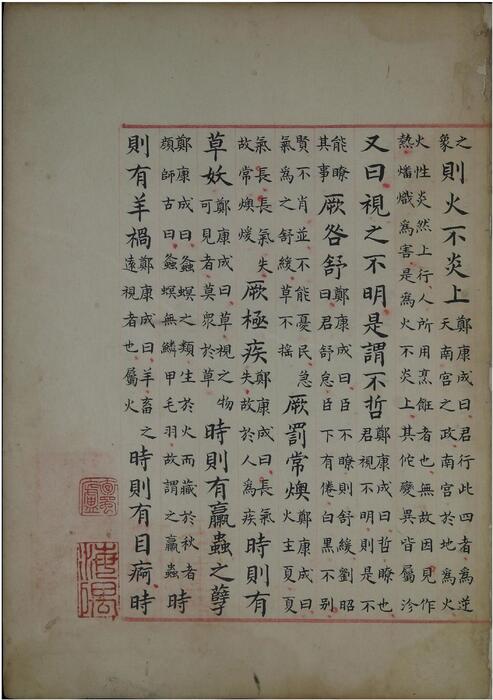 之象則火不炎上鄭康成曰君行此四者為逆天南宮之政南宮於地為火
火性炎然上行人所用烹飪者也無故因見作熱燔熾為害是為火不炎上其佗變異皆屬沴
又曰視之不明是謂不哲鄭康成曰哲瞭也君視不明則是不
能瞭其事厥咎舒鄭康成曰臣不瞭則舒緩劉昭曰君舒怠臣下有倦白黑不别
賢不肖並不能憂民急氣為之舒緩草不搖厥罰常燠鄭康成曰火主夏夏
氣長長氣失故常燠煖厥極疾鄭康成曰長氣失故於人為疾時則有
草妖鄭康成曰草視之物可見者莫衆於草時則有蠃蟲之孽
鄭康成曰螽螟之類生於火而藏於秋者顏師古曰螽螟無鱗甲毛羽故謂之蠃蟲時
則有羊禍鄭康成曰羊畜之遠視者也屬火時則有目痾時